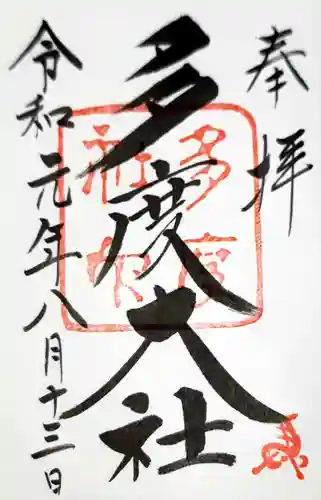 奉拝
多度大社
令和元年八月十三日
多度
大社